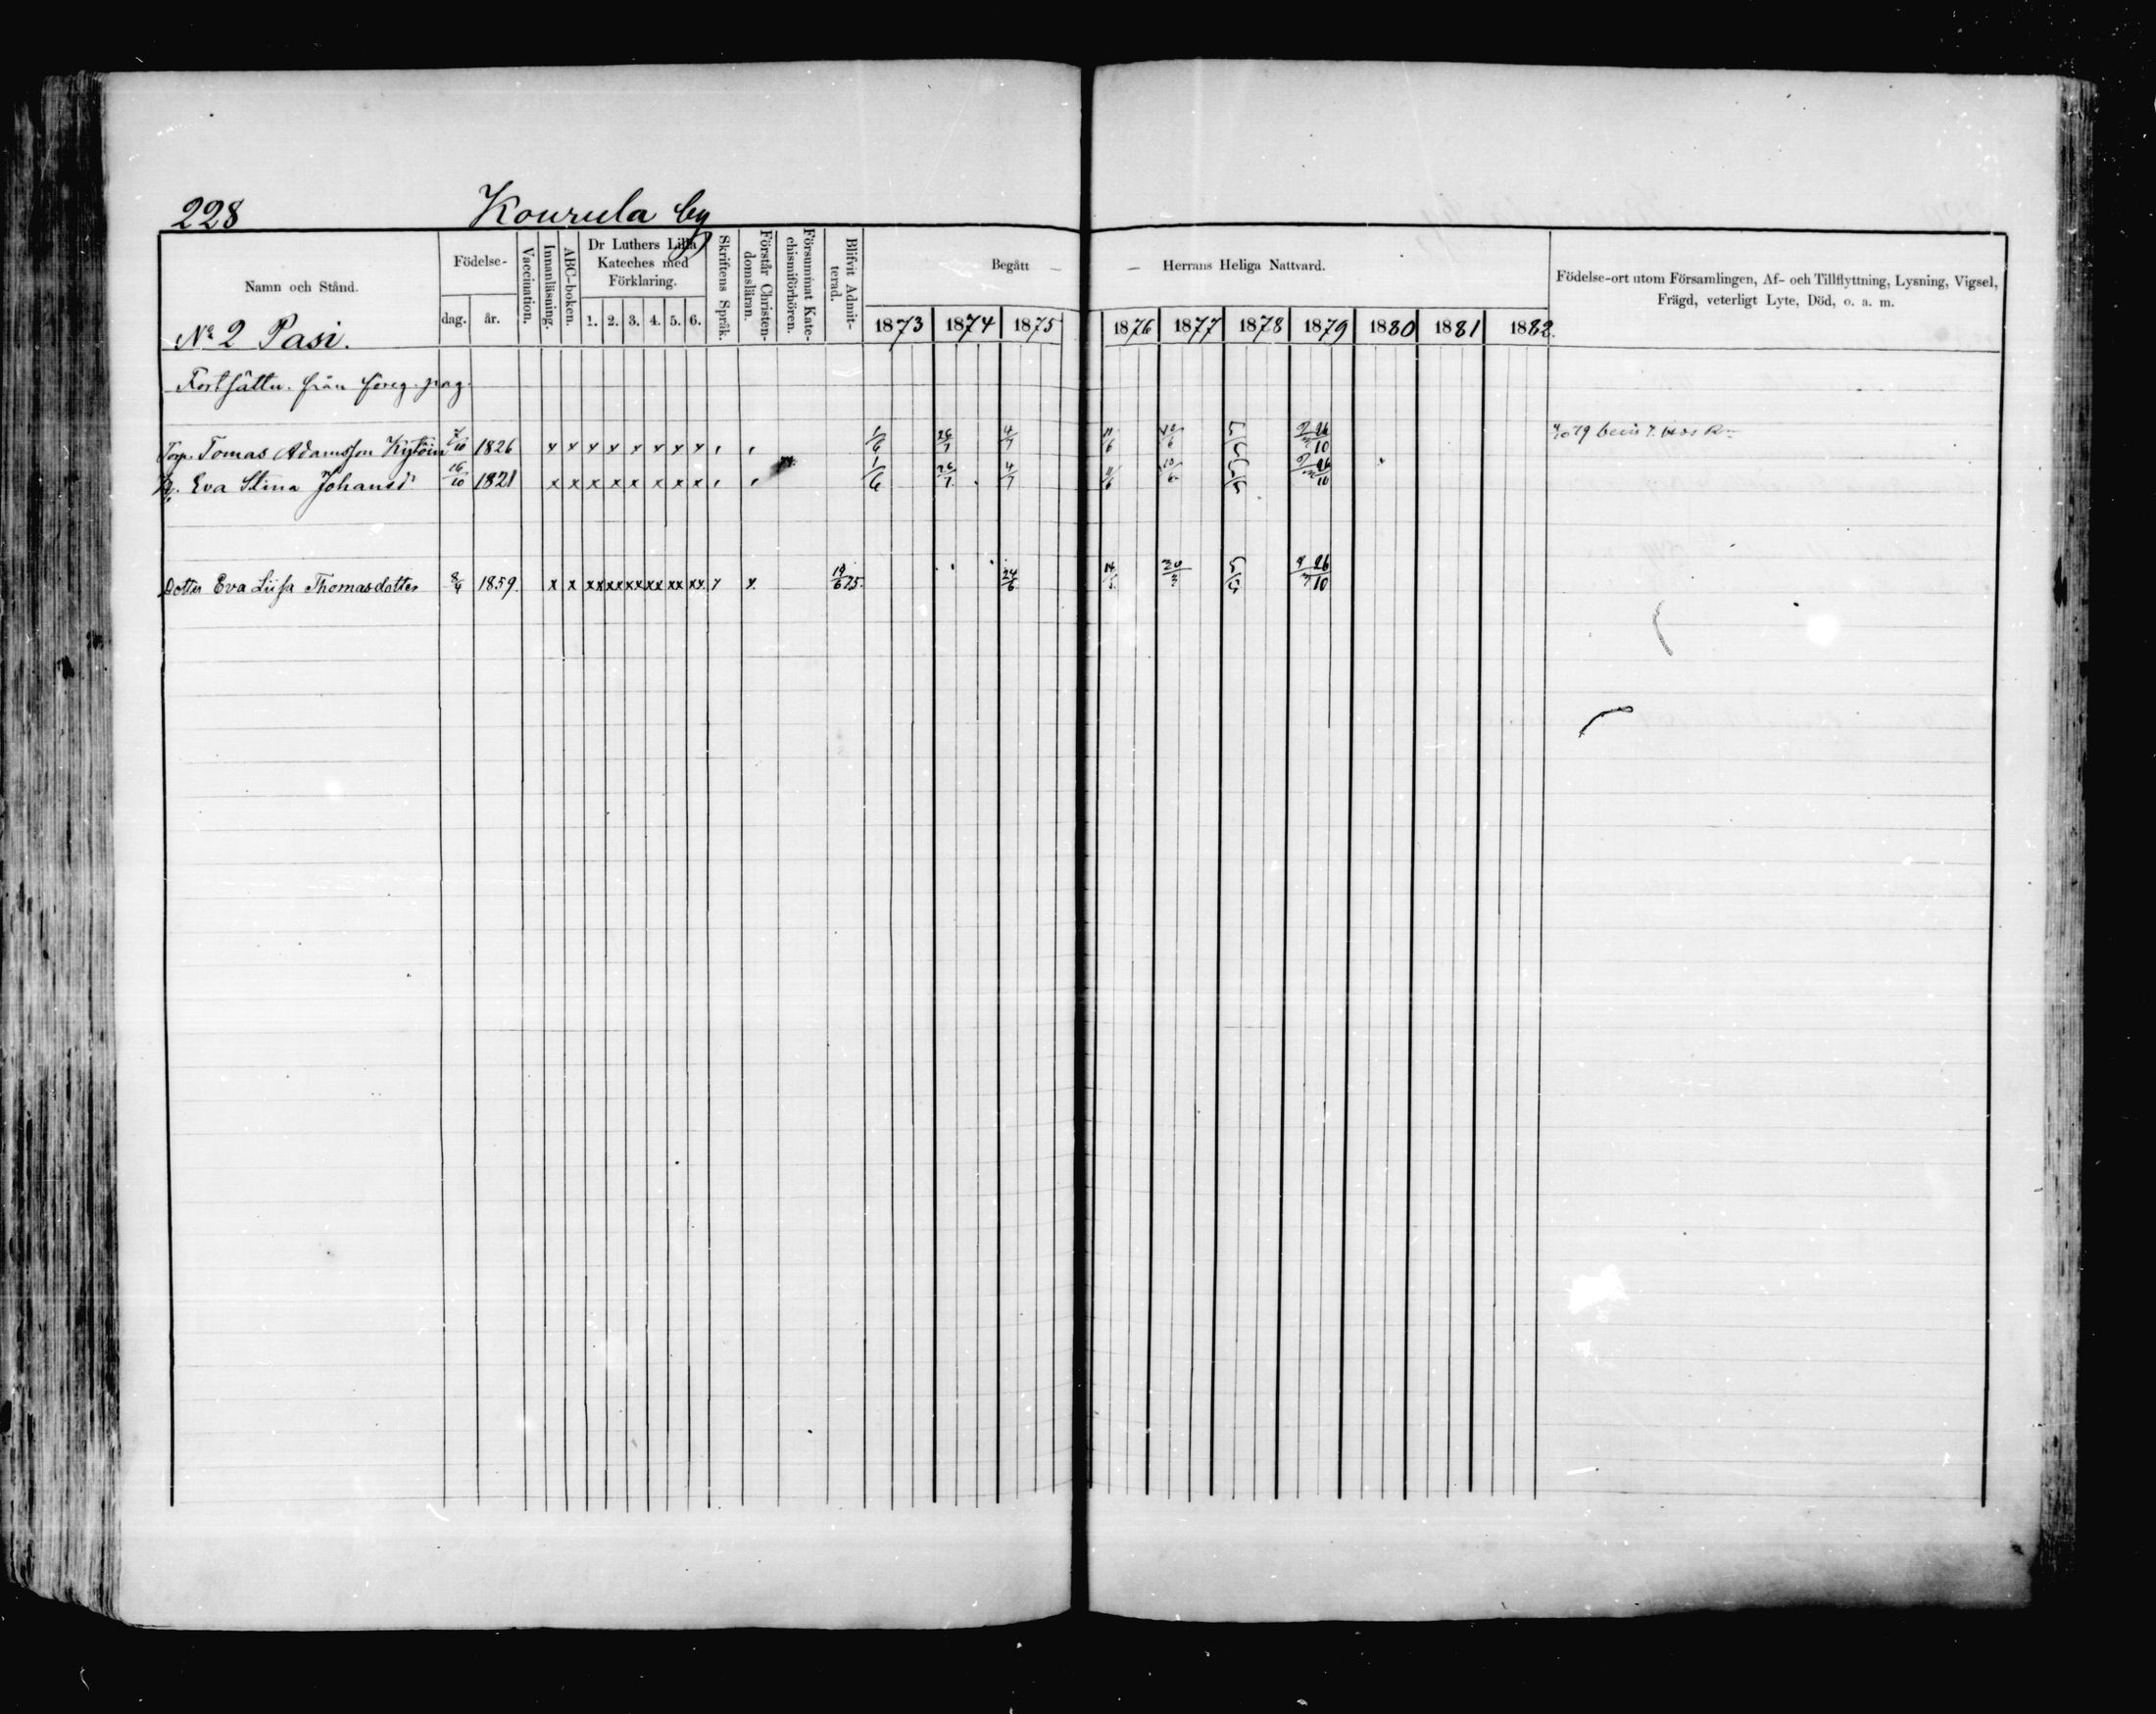 228 Kourula by
Namn och Stånd.
Födelse-
dag. år.
Vaccination.
Innanläsning.
ABC-boken.
Dr Luthers Lilla
Kateches med
Förklaring.
1. 2. 3. 4. 5. 6.
Skriftens Språk.
Förstår Christen-
domsläran.
Försummat Kate-
chismiförhören.
Blifvit Admit-
terad.
Begått — — Herrans Heliga Nattvard.
1873 1874 1875 1876 1877 1878 1879 1880 1881 1882.
Födelse-ort utom Församlingen, Af- och Tillflyttning, Lysning, Vigsel,
Frägd, veterligt Lyte, Död, o. a. m.
No 2 Pasi.
Fortsättn. från föreg. pag.
Torp. Tomas Adamsson Kytöin 1826 x x x x x x x x 1/6 26/7 4/7 11/6 10/6 26/10
H. Eva Stina Johansd. 16/10 1821 x x x x x x x x 1/6 26/7 4/7 11/6 10/6 26/10
Dotter Eva Liisa Thomasdotter 8/4 1859. x x xx xx xx xx xx xx x x. 19/6 75. 24/6 26/10